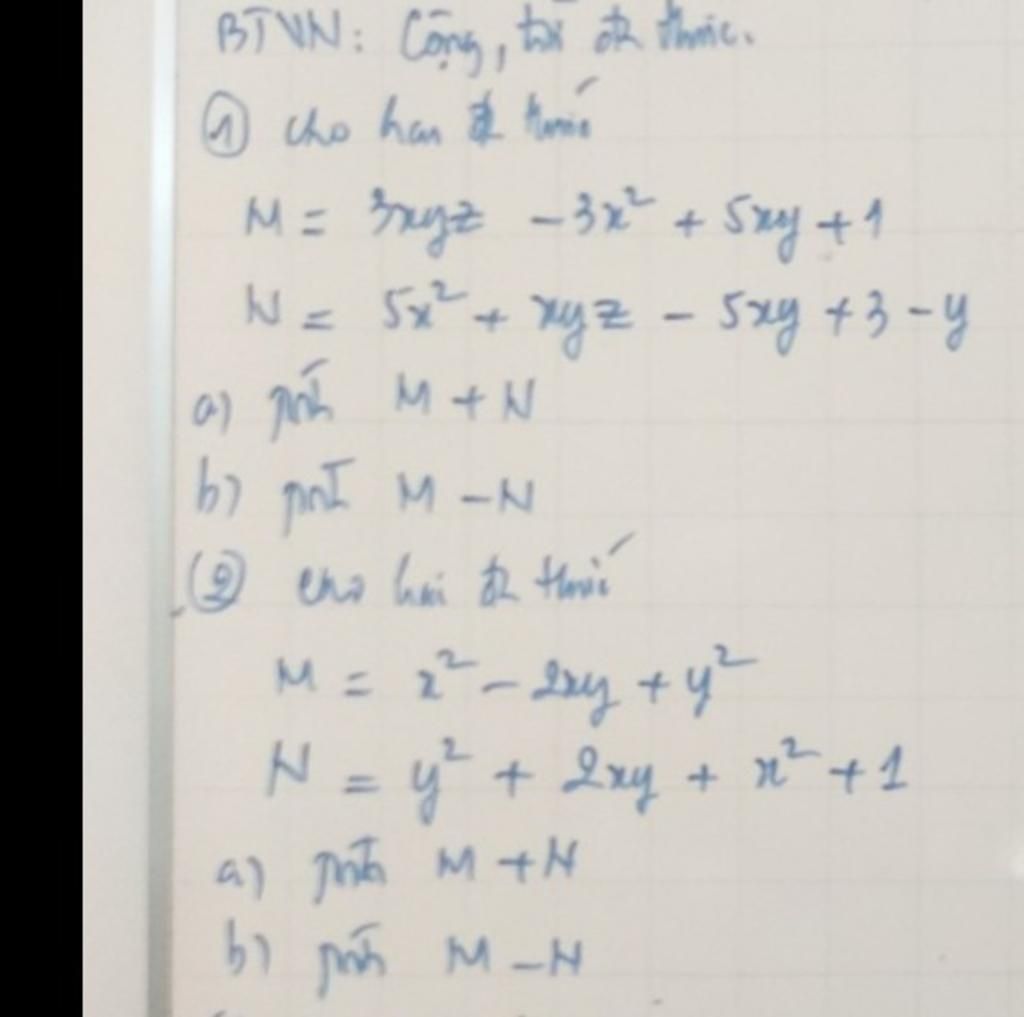 BTVN: Cộng, trừ đa thức.
① cho hai đa thức
M = 3xyz - 3x² + 5xy + 1
N = 5x² + xyz - 5xy + 3 - y
a) tính M + N
b) tính M - N
② cho hai đa thức
M = x² - 2xy + y²
N = y² + 2xy + x² + 1
a) tính M + N
b) tính M - N